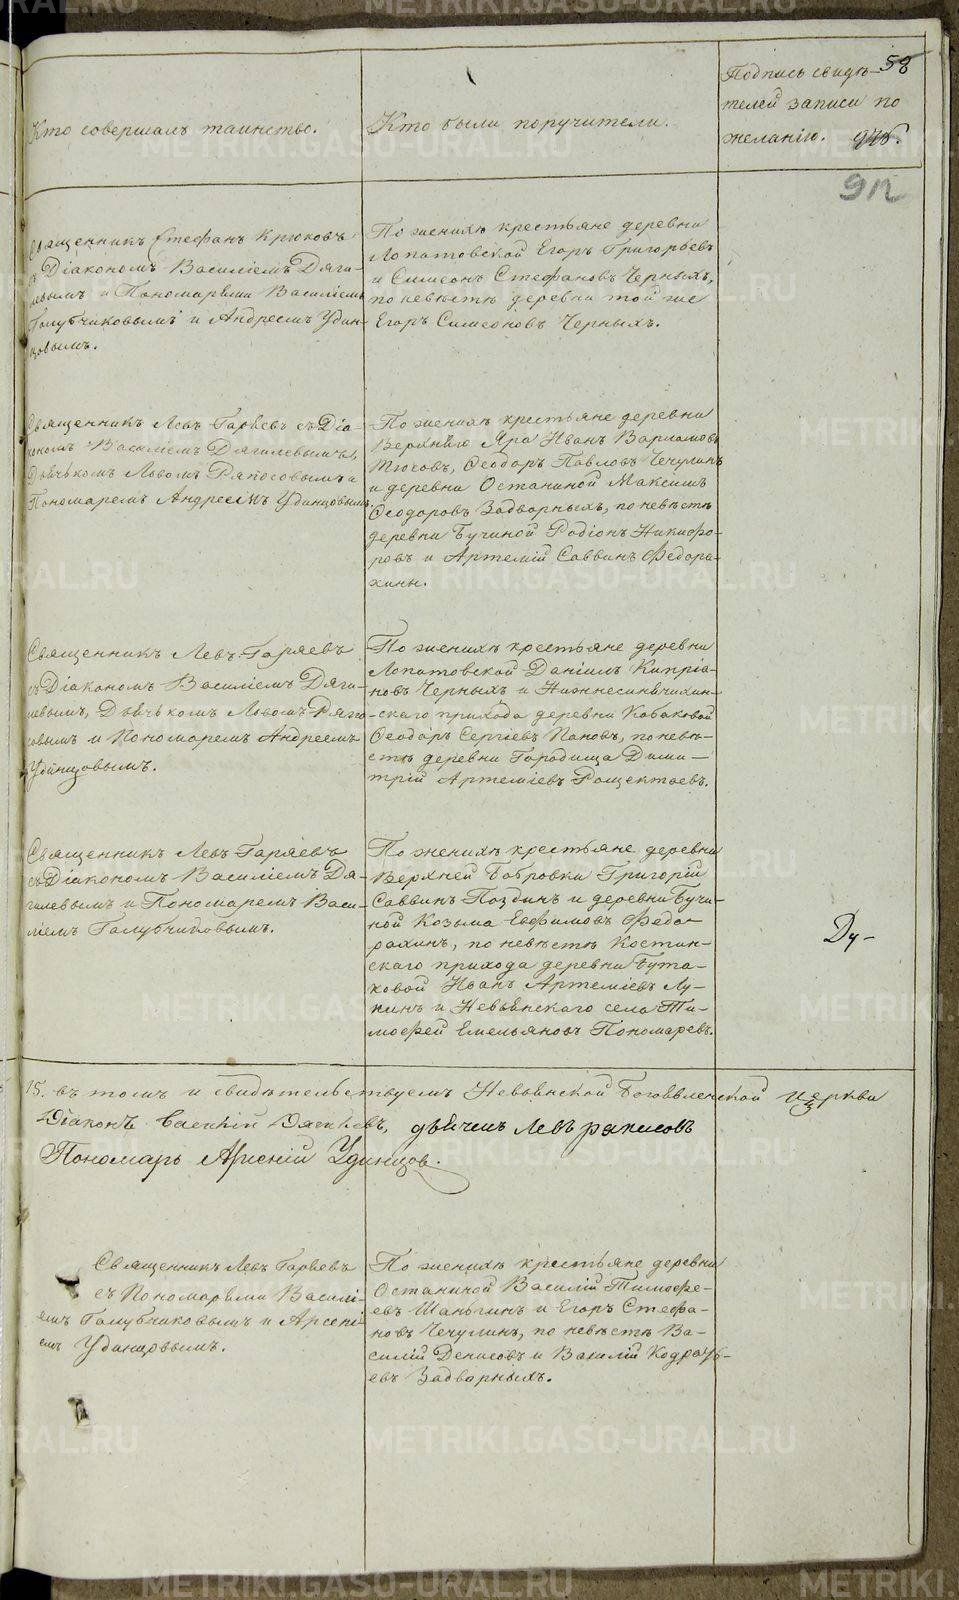 58
Подпись свидѣ-
телей записи по
желанію.
Кто совершалъ таинство.
Кто были поручители.
912
Священникъ Стефанъ Крюковъ
съ Діакономъ Василіемъ Дяги-
левымъ и Пономарями Василіемъ
Голубчиковымъ и Андреемъ Удин-
цовымъ.
По женихѣ крестьяне деревни
Лопатовской Егоръ Григорьевъ
и Симеонъ Стефановъ Черныхъ,
по невѣстѣ деревни той же
Егоръ Симеоновъ Черныхъ.
Священникъ Левъ Гаряевъ съ Діа-
кономъ Василіемъ Дягилевымъ,
Дьячькомъ Львомъ Ряпосовымъ и
Пономаремъ Удинцовымъ.
По женихѣ крестьяне деревни
Верхняго Яра Иванъ Варламовъ
Ѳеодоръ Павловъ Чечулинъ
и деревни Останиной Максимъ
Ѳеодоровъ Задворныхъ, по невѣстѣ
деревни Бучиной Родіонъ Никифо-
ровъ и Артемій Саввинъ Федора-
хины.
Священникъ Левъ Гаряевъ
съ Діакономъ Василіемъ Дяги-
левымъ, Дьячькомъ Львомъ Ряпо-
совымъ и Пономаремъ Андреемъ
Удинцовымъ.
По женихѣ крестьяне деревни
Лопатовской Даніилъ Кипріа-
новъ Черныхъ и Нижнесинячихин-
скаго прихода деревни Кабаковой
Ѳеодоръ Сергіевъ Пановъ, по невѣ-
стѣ деревни Городища Дими-
трій Артеміевъ Рощектаевъ.
Священникъ Левъ Гаряевъ
съ Діакономъ Василіемъ Дя-
гилевымъ и Пономаремъ Васи-
ліемъ Голубчиковымъ.
По женихѣ крестьяне деревни
Верхней Бобровки Григорій
Саввинъ Поздинъ и деревни Бучи-
ной Козьма Евфимовъ Федо-
рахинъ, по невѣстѣ Костин-
скаго прихода деревни Бута-
ковой Иванъ Артеміевъ Лу-
кинъ и Невьянскаго села Ти-
мофей Емельяновъ Пономаревъ.
Ду-
15. въ томъ и свидѣтельствуемъ Невьянской Богоявленской церкви
Діаконъ Василій Дягилевъ, дьячекъ Левъ ряпосовъ
Пономарь Арсеній Удинцов.
Священникъ Левъ Гаряевъ
съ Пономарями Василі-
емъ Голубчиковымъ и Арсені
емъ Удинцовымъ.
По женихѣ крестьяне деревни
Останиной Василій Тимофе-
евъ Шаньгинъ и Егоръ Стефа-
новъ Чечулинъ, по невѣстѣ Ва-
силій Денисовъ и Василій Кодрать-
евъ Задворныхъ.
METRIKI.GASO-URAL.RU